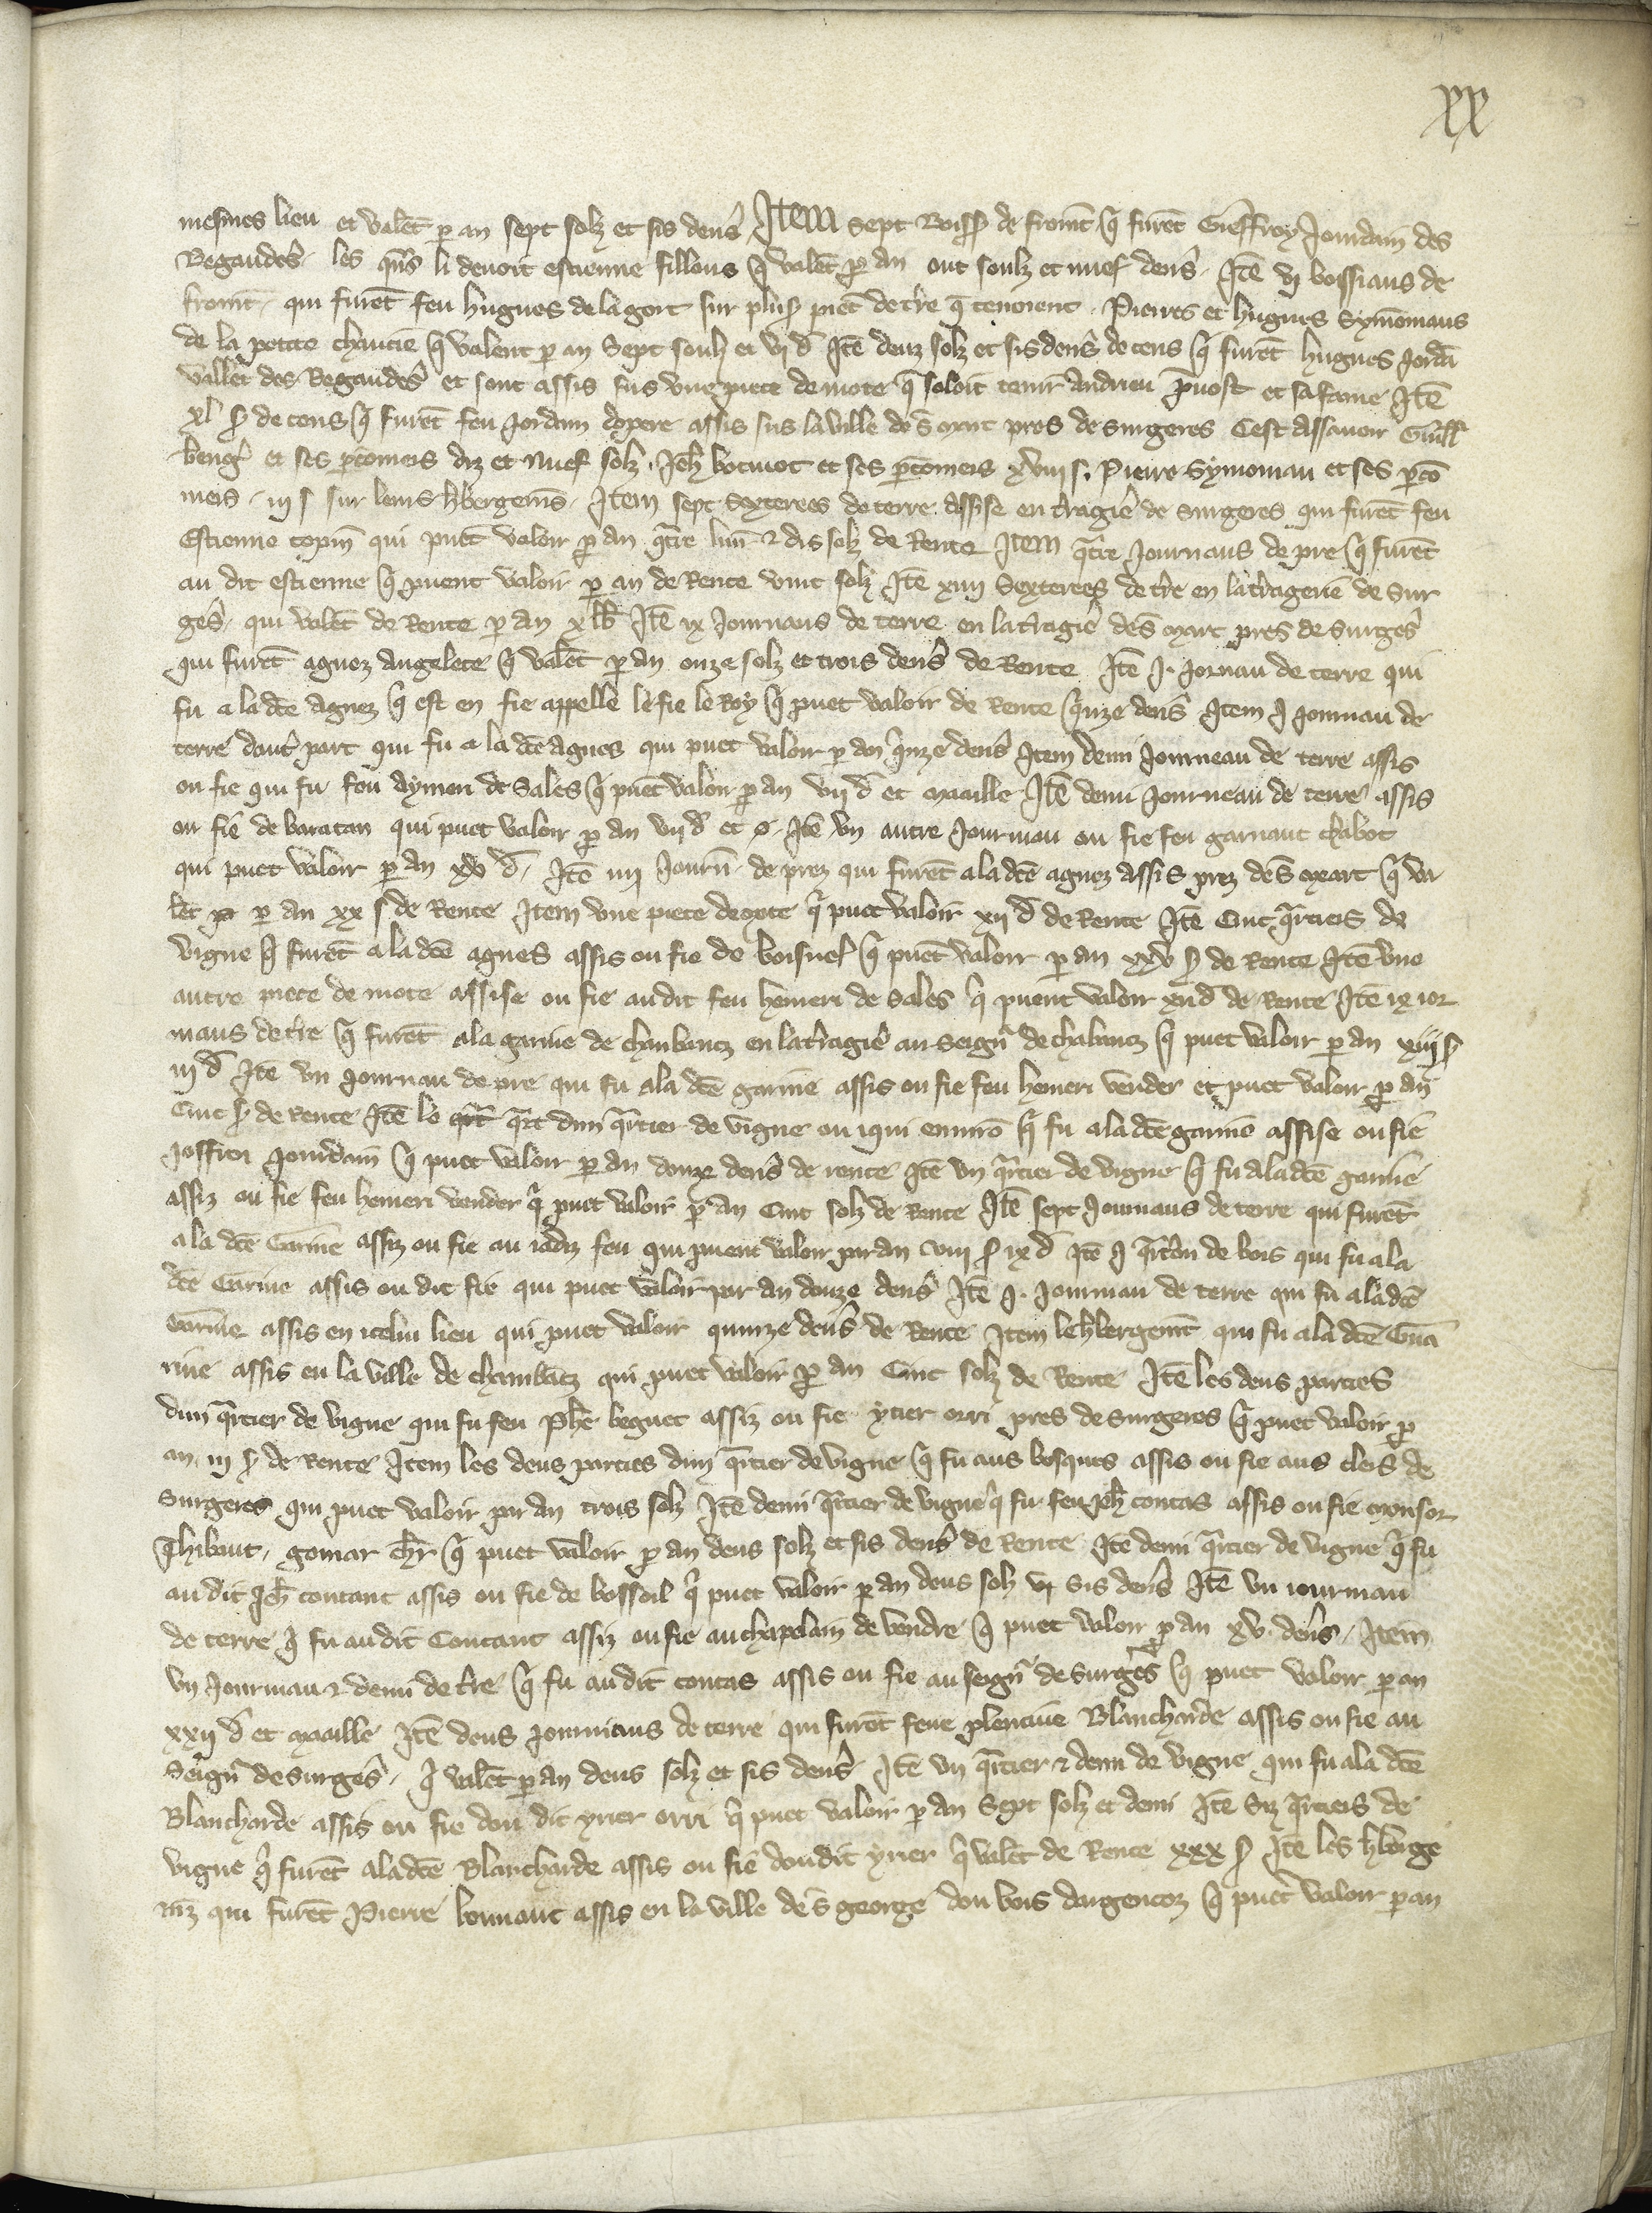 xx
mesmes lieu et valēt p an sept solz et sis deñs Item sept Boiss de fromēt q̄ furēt Gieffroy Jourdain des
Regaudes les quñs li devoit estienne fillons q̄ valēt p an out soulz et nuef deñs Itē vj boissiaus de
fromēt qui furēt feu hugues de la gort sur pluss piec̄ de tre q̄ tenoient Pierres et hugues Symōniaus
de la petite q̄ valent p an Sept soulz et vj d Itē deuz solz et sis deñs de cens q̄ furēt hugues Jordā
vallet des Regaudes et sont assis sus une piece de mote q̄ soloit tenir Andrieu pvost et sa fame Itē
xl s de cens q̄ furēt feu Jordain assis sus la ville de s̄ mart pres de surgeres Cest assavoir Guill
et ses pconeis diz et nuef solz Jeh et ses pconeis xviij s. Pierre Symoniau et ses pco
neis iij s sur leurs hbergemēs Item sept Sexterees de terre assise en tragie de surgeres qui furēt feu
Estienne topin qui puēt valoir p an qtre liur̄ & dis solz de Rente Item qtre Journaus de pre q̄ furēt
au dit estienne q̄ puent valoir p an de Rente vint solz Itē xiiij Sexterees de tre en la tragerie de Sur
ges qui valēt de Rente p an x lb Itē ix Journaus de terre en la tragie de s̄ mart pres de Surges
qui furēt agnez Angelete q̄ valēt p an onze solz et trois deñs de Rente Itē J. Jornau de terre qui
fu a la dcē Agnez q̄ est en fie appelle le fie le Roy q̄ puet valoir de Rente qinze deñs Item J Journau de
terre dautˢ part qui fu a la dcē Agnes qui puet valoir p an qinze deñs Item demi Journeau de terre assis
ou fie qui fu feu Aymeri de Sales q̄ puet valoir p an vij d et maille Itē demi Journeau de terre assis
ou fie de baratan qui puet valoir p an vij d et o. Itē un autre Journau ou fie feu garnaut chabot
qui puet valoir p an xv d. Itē iiij Journ̄ de prez qui furēt a la dcē agnez assis prez de s̄ mart q̄ va
lēt p an xx s de Rente Item une piece de mote q̄ puet valoir xij d de Rente Itē Cinc qrtiers de
vigne q̄ furēt a la dcē agnes assis ou fie de boisnef q̄ puēt valoir p an xxv s de Rente Itē une
autre piece de mote assise ou fie audit feu hemeri de Sales q̄ puent valoir xij d de Rente Itē ix ior
naus de tre q̄ furēt a la garine de chanbancz en la tragie au Seignˢ de chabancz q̄ puet valoir p an xiij s
iij d Itē un Journau de pre qui fu a la dcē garine assis ou fie feu hemeri vender et puet valoir p an
Cinc s de Rente Itē le qrt dun qrtier de vigne ou iqui enuirō q̄ fu a la dcē garine assise ou fie
Joffrei Jourdain q̄ puet valoir p an douze deñs de rente Itē un qrtier de vigne q̄ fu a la dcē garine
assiz ou fie feu hemeri vender q̄ puet valoir p an Cinc solz de Rente Itē sept Journaus de terre qui furēt
a la dcē Garine assiz ou fie au iadiz feu qui puent valoir par an viij s ix d Itē J qrtōn de bois qui fu a la
dcē Garine assis ou dit fie qui puet valoir par an douze deñs Itē J. Journau de terre qui fu a la dcē
Garine assis en icelui lieu qui puet valoir quinze deñs de Rente Item le hbergemēt qui fu a la dcē Gua
rine assis en la ville de chambācz qui puet valoir p an Cinc solz de Rente Itē les deus parties
dun qrtier de vigne qui fu feu Phe beguet assiz ou fie ytier orri pres de surgeres q̄ puet valoir p
an iij s de Rente Item les deus parties dun qrtier de vigne q̄ fu aus bosques assis ou fie aus clers de
Surgeres qui puet valoir par an trois solz Itē demi qrtier de vigne q̄ fu feu Jeh contās assis ou fie monsor
Thibaut gomar chr q̄ puet valoir p an deus solz et sis deñs de Rente Itē demi qrtier de vigne q̄ fu
au dit Jeh contant assis ou fie de bossoil q̄ puet valoir p an deus solz sis deñs Itē un iournau
de terre q̄ fu au dit Contant assiz ou fie au chapelain de vendre q̄ puet valoir p an xv deñs Item
un Journau & demi de tre q̄ fu au dit contās assis ou fie au seignˢ de surges q̄ puet valoir p an
xxij d et maille Itē deus Journaus de terre qui furēt feue plentive Blancharde assis ou fie au
Seignˢ de surges q̄ valēt p an deus solz et sis deñs Itē un qrtier & demi de vigne qui fu a la dcē
Blancharde assis ou fie dou dit ytier orri q̄ puet valoir p an Sept solz et demi Itē Siz qrtiers de
vigne q̄ furēt a la dcē Blancharde assis ou fie doudit ytier q̄ valēt de Rente xxx s Itē les hberge
mz qui furēt Pierre bonnaut assis en la ville de s̄ george dou bois dargencoz q̄ puēt valoir p an